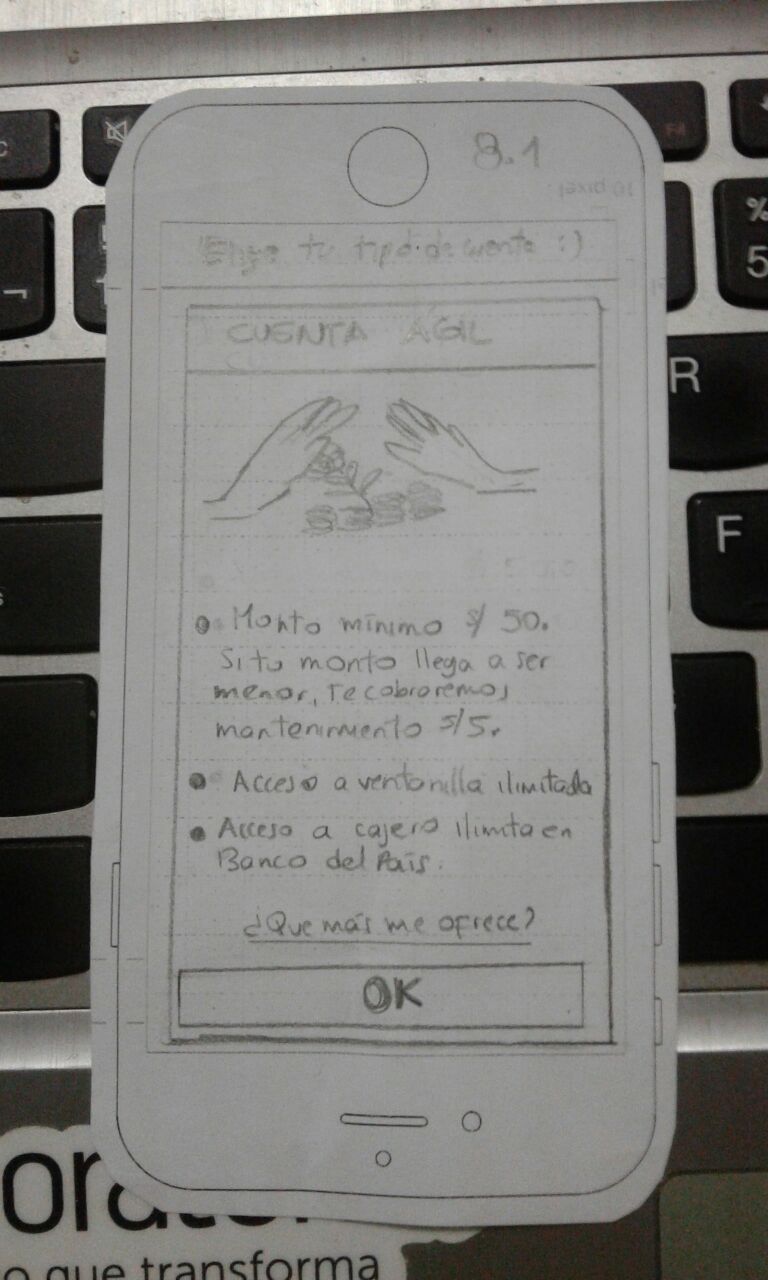 8.1
10 pixel
Elige tu tipo de cuenta :)
CUENTA ÁGIL
Monto mínimo S/ 50.
Si tu monto llega a ser
menor, te cobraremos
mantenimiento S/5.
Acceso a ventanilla ilimitada
Acceso a cajero ilimita en
Banco del País.
¿Que más me ofrece?
OK
%
5
R
F
o que transforma